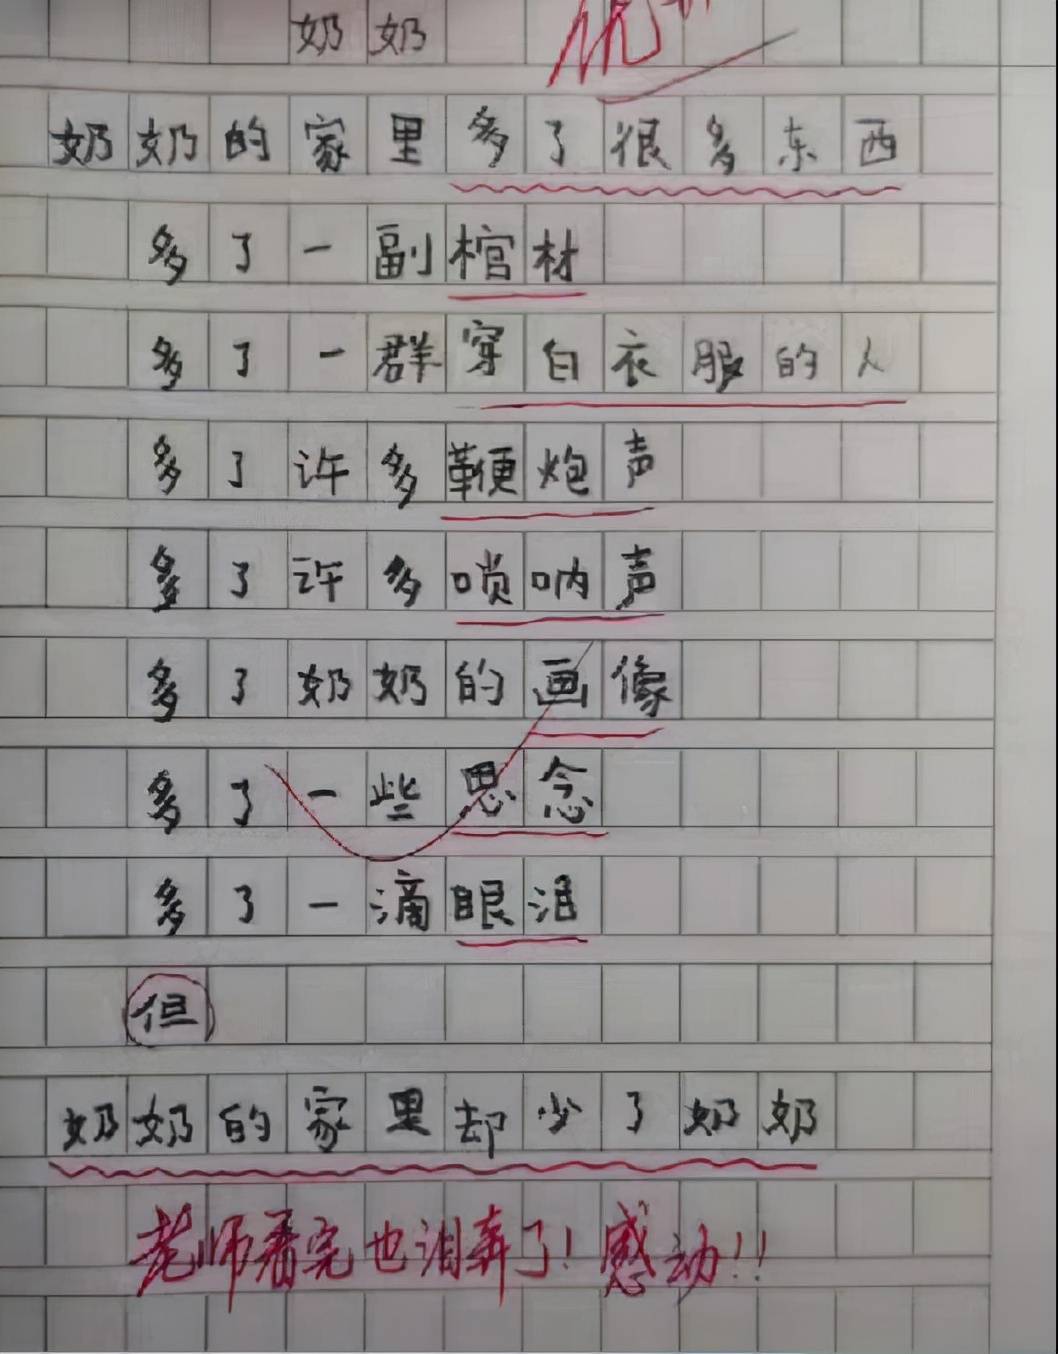 奶奶
优++
奶奶的家里多了很多东西
多了一副棺材
多了一群穿白衣服的人
多了许多鞭炮声
多了许多唢呐声
多了奶奶的画像
多了一些思念
多了一滴眼泪
但
奶奶的家里却少了奶奶
老师看完也泪奔了！感动！！